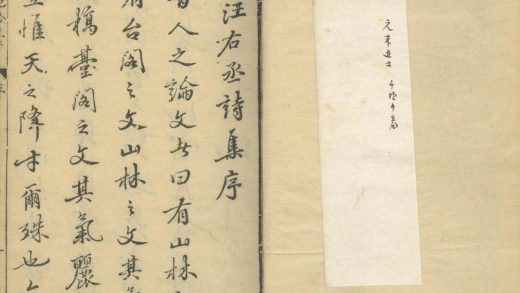 元末進士
汪右丞詩集序
昔人之論文者曰有山林
有台閣之文山林之文其氣
槁臺閣之文其氣麗
豈惟天之降才爾殊也